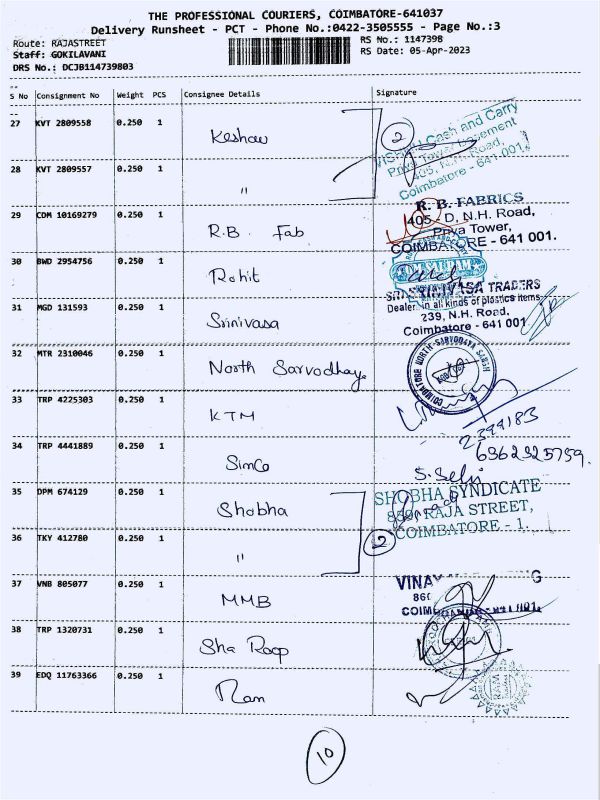 THE PROFESSIONAL COURIERS, COIMBATORE-641037
Delivery Runsheet - PCT - Phone No.:0422-3505555 - Page No.:3
Route: RAJASTREET RS No.: 1147398
Staff: GOKILAVANI RS Date: 05-Apr-2023
DRS No.: DCJB114739803
S No Consignment No Weight PCS Consignee Details Signature
27 KVT 2809558 0.250 1 Keshav 2
Cash and Carry
28 KVT 2809557 0.250 1 "
405, N.H. Road,
Coimbatore - 641 001.
29 CDM 10169279 0.250 1 R.B. Fab
R. B. FABRICS
405 - D, N.H. Road,
Priya Tower,
COIMBATORE - 641 001.
30 BWD 2954756 0.250 1 Rohit
31 MGD 131593 0.250 1 Srinivasa
SRI SRINIVASA TRADERS
Dealer in all kinds of plastics items
239, N.H. Road,
Coimbatore - 641 001
32 MTR 2310046 0.250 1 North Sarvodhaya
COIMBATORE NORTH SARVODAYA SANGH
33 TRP 4225303 0.250 1 KTM
2399183
34 TRP 4441889 0.250 1 SimCo
6362325759.
S. Selvi
35 DPM 674129 0.250 1 Shobha
SHOBHA SYNDICATE
RAJA STREET,
COIMBATORE - 1.
36 TKY 412780 0.250 1 " 2
37 VNB 805077 0.250 1 MMB
38 TRP 1320731 0.250 1 Sha Roop
39 EDQ 11763366 0.250 1 Ram
10